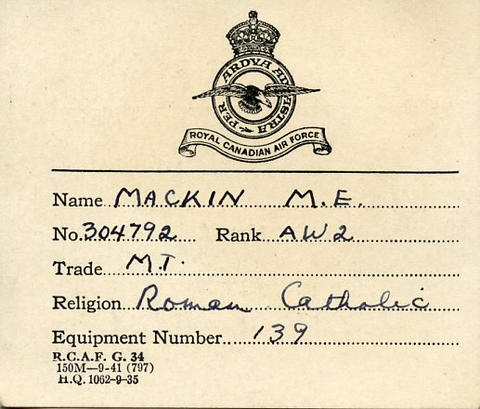 PER ARDVA AD ASTRA
ROYAL CANADIAN AIR FORCE
Name MACKIN M.E.
No. 304792 Rank AW2
Trade M.T.
Religion Roman Catholic
Equipment Number 139
R.C.A.F. G. 34
150M—9-41 (797)
H.Q. 1062-9-35